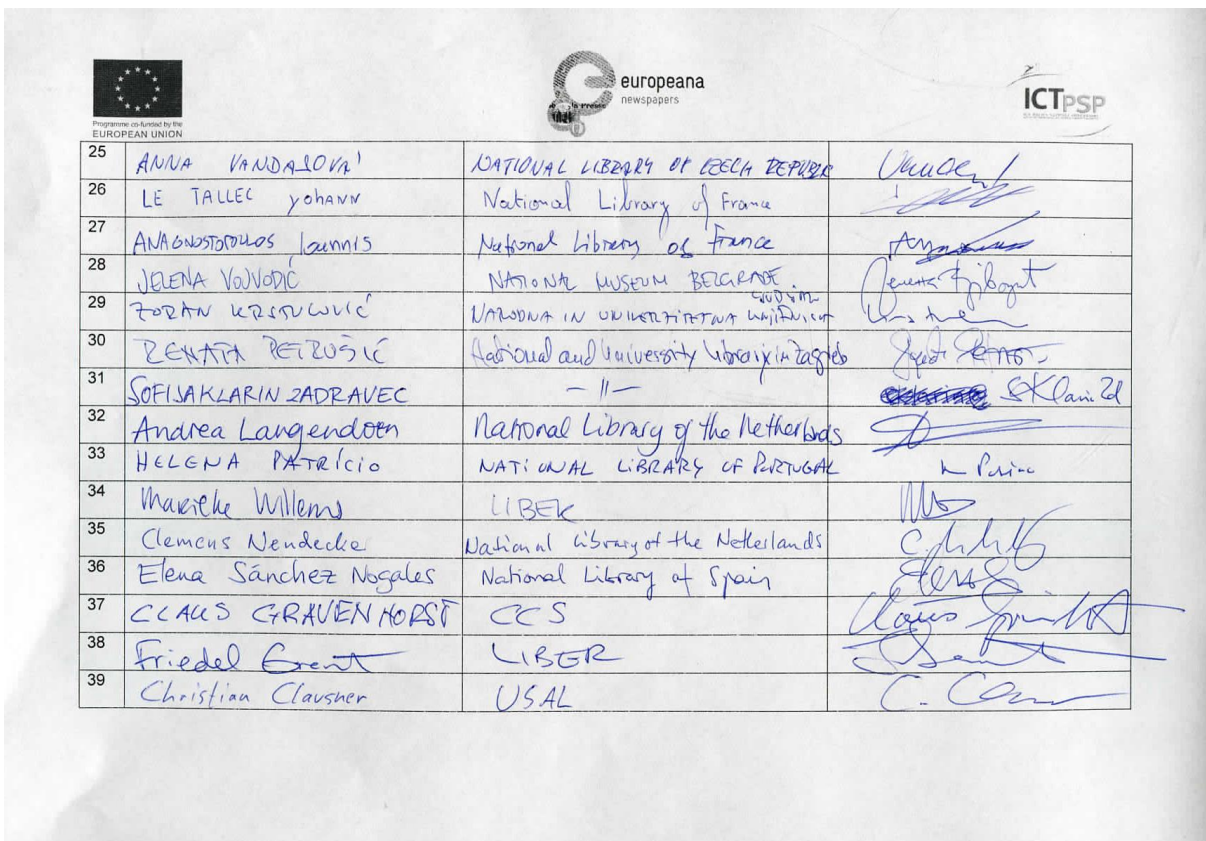 europeana
newspapers
Programme co-funded by the
EUROPEAN UNION
ICTPSP
25 ANNA VANDASOVA' NATIONAL LIBRARY OF CZECH REPUBLIC
26 LE TALLEC yohann National Library of France
27 ANAGNOSTOPOULOS Ioannis National Library of France
28 JELENA VOJVODIĆ NATIONAL MUSEUM BELGRADE
29 ZORAN KRSTULOVIĆ NARODNA IN UNIVERZITETNA KNJIŽNICA
30 RENATA PETRUŠIĆ National and University Library in Zagreb
31 SOFIJA KLARIN ZADRAVEC — 11 —
32 Andrea Langendoen National Library of the Netherlands
33 HELENA PATRÍCIO NATIONAL LIBRARY OF PORTUGAL
34 Marieke Willems LIBER
35 Clemens Neudecker National Library of the Netherlands
36 Elena Sánchez Nogales National Library of Spain Elena
37 CLAUS GRAVENHORST CCS Claus
38 Friedel Grant LIBER
39 Christian Clausner USAL C.